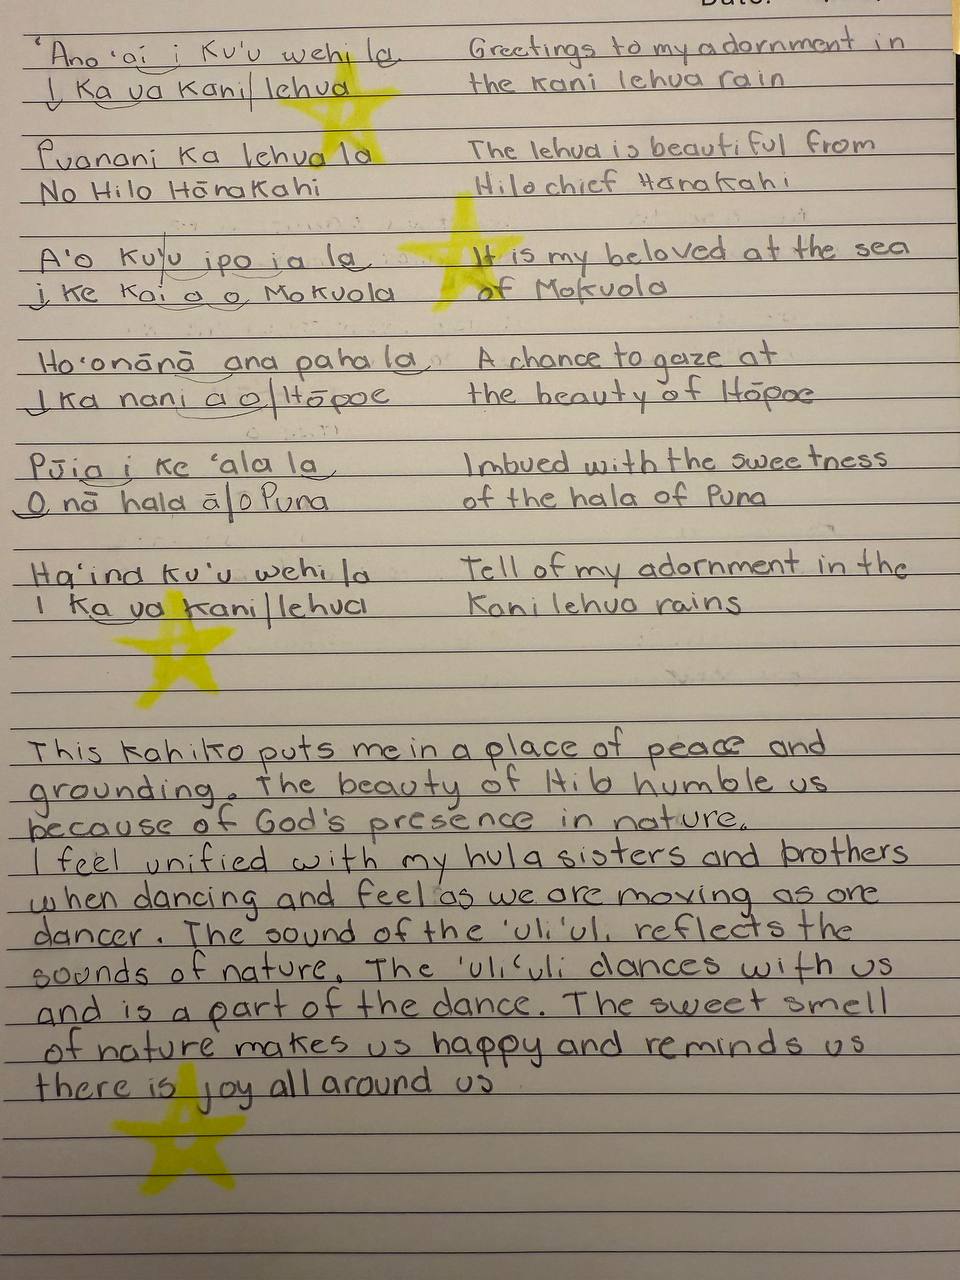 'Ano 'ai i Ku'u wehi la
I Ka ua Kani/lehua
Greetings to my adornment in
the Kani lehua rain
Puanani Ka lehua la
No Hilo Hānakahi
The lehua is beautiful from
Hilo chief Hānakahi
A'o Ku'u ipo ia la
i Ke Kai a o Mokuola
It is my beloved at the sea
of Mokuola
Ho'onānā ana paha la
I Ka nani a o/Hōpoe
A chance to gaze at
the beauty of Hōpoe
Pūia i Ke 'ala la
O nā hala ā/o Puna
Imbued with the sweetness
of the hala of Puna
Ha'ina Ku'u wehi la
I Ka ua Kani/lehua
Tell of my adornment in the
Kani lehua rains
This Kahiko puts me in a place of peace and
grounding. The beauty of Hilo humble us
because of God's presence in nature.
I feel unified with my hula sisters and brothers
when dancing and feel as we are moving as one
dancer. The sound of the 'uli'uli reflects the
sounds of nature. The 'uli'uli dances with us
and is a part of the dance. The sweet smell
of nature makes us happy and reminds us
there is joy all around us